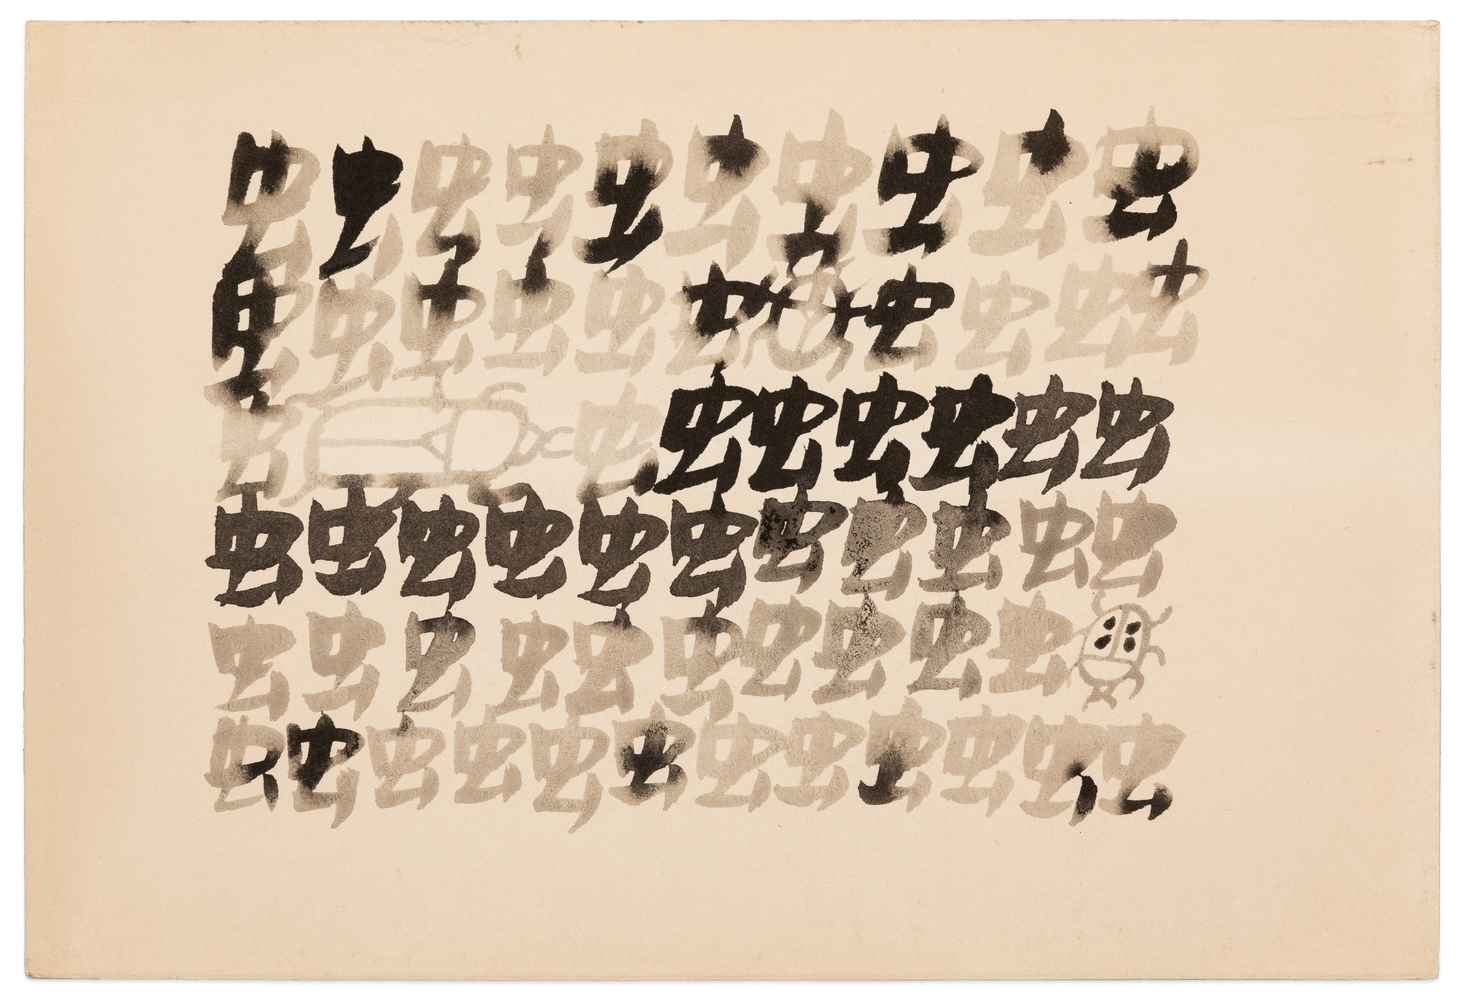 虫虫虫虫虫虫虫虫虫虫
虫虫虫虫虫虫虫虫虫虫
虫虫虫虫虫虫虫虫
虫虫虫虫虫虫虫虫虫虫虫
虫虫虫虫虫虫虫虫虫虫
虫虫虫虫虫虫虫虫虫虫虫虫